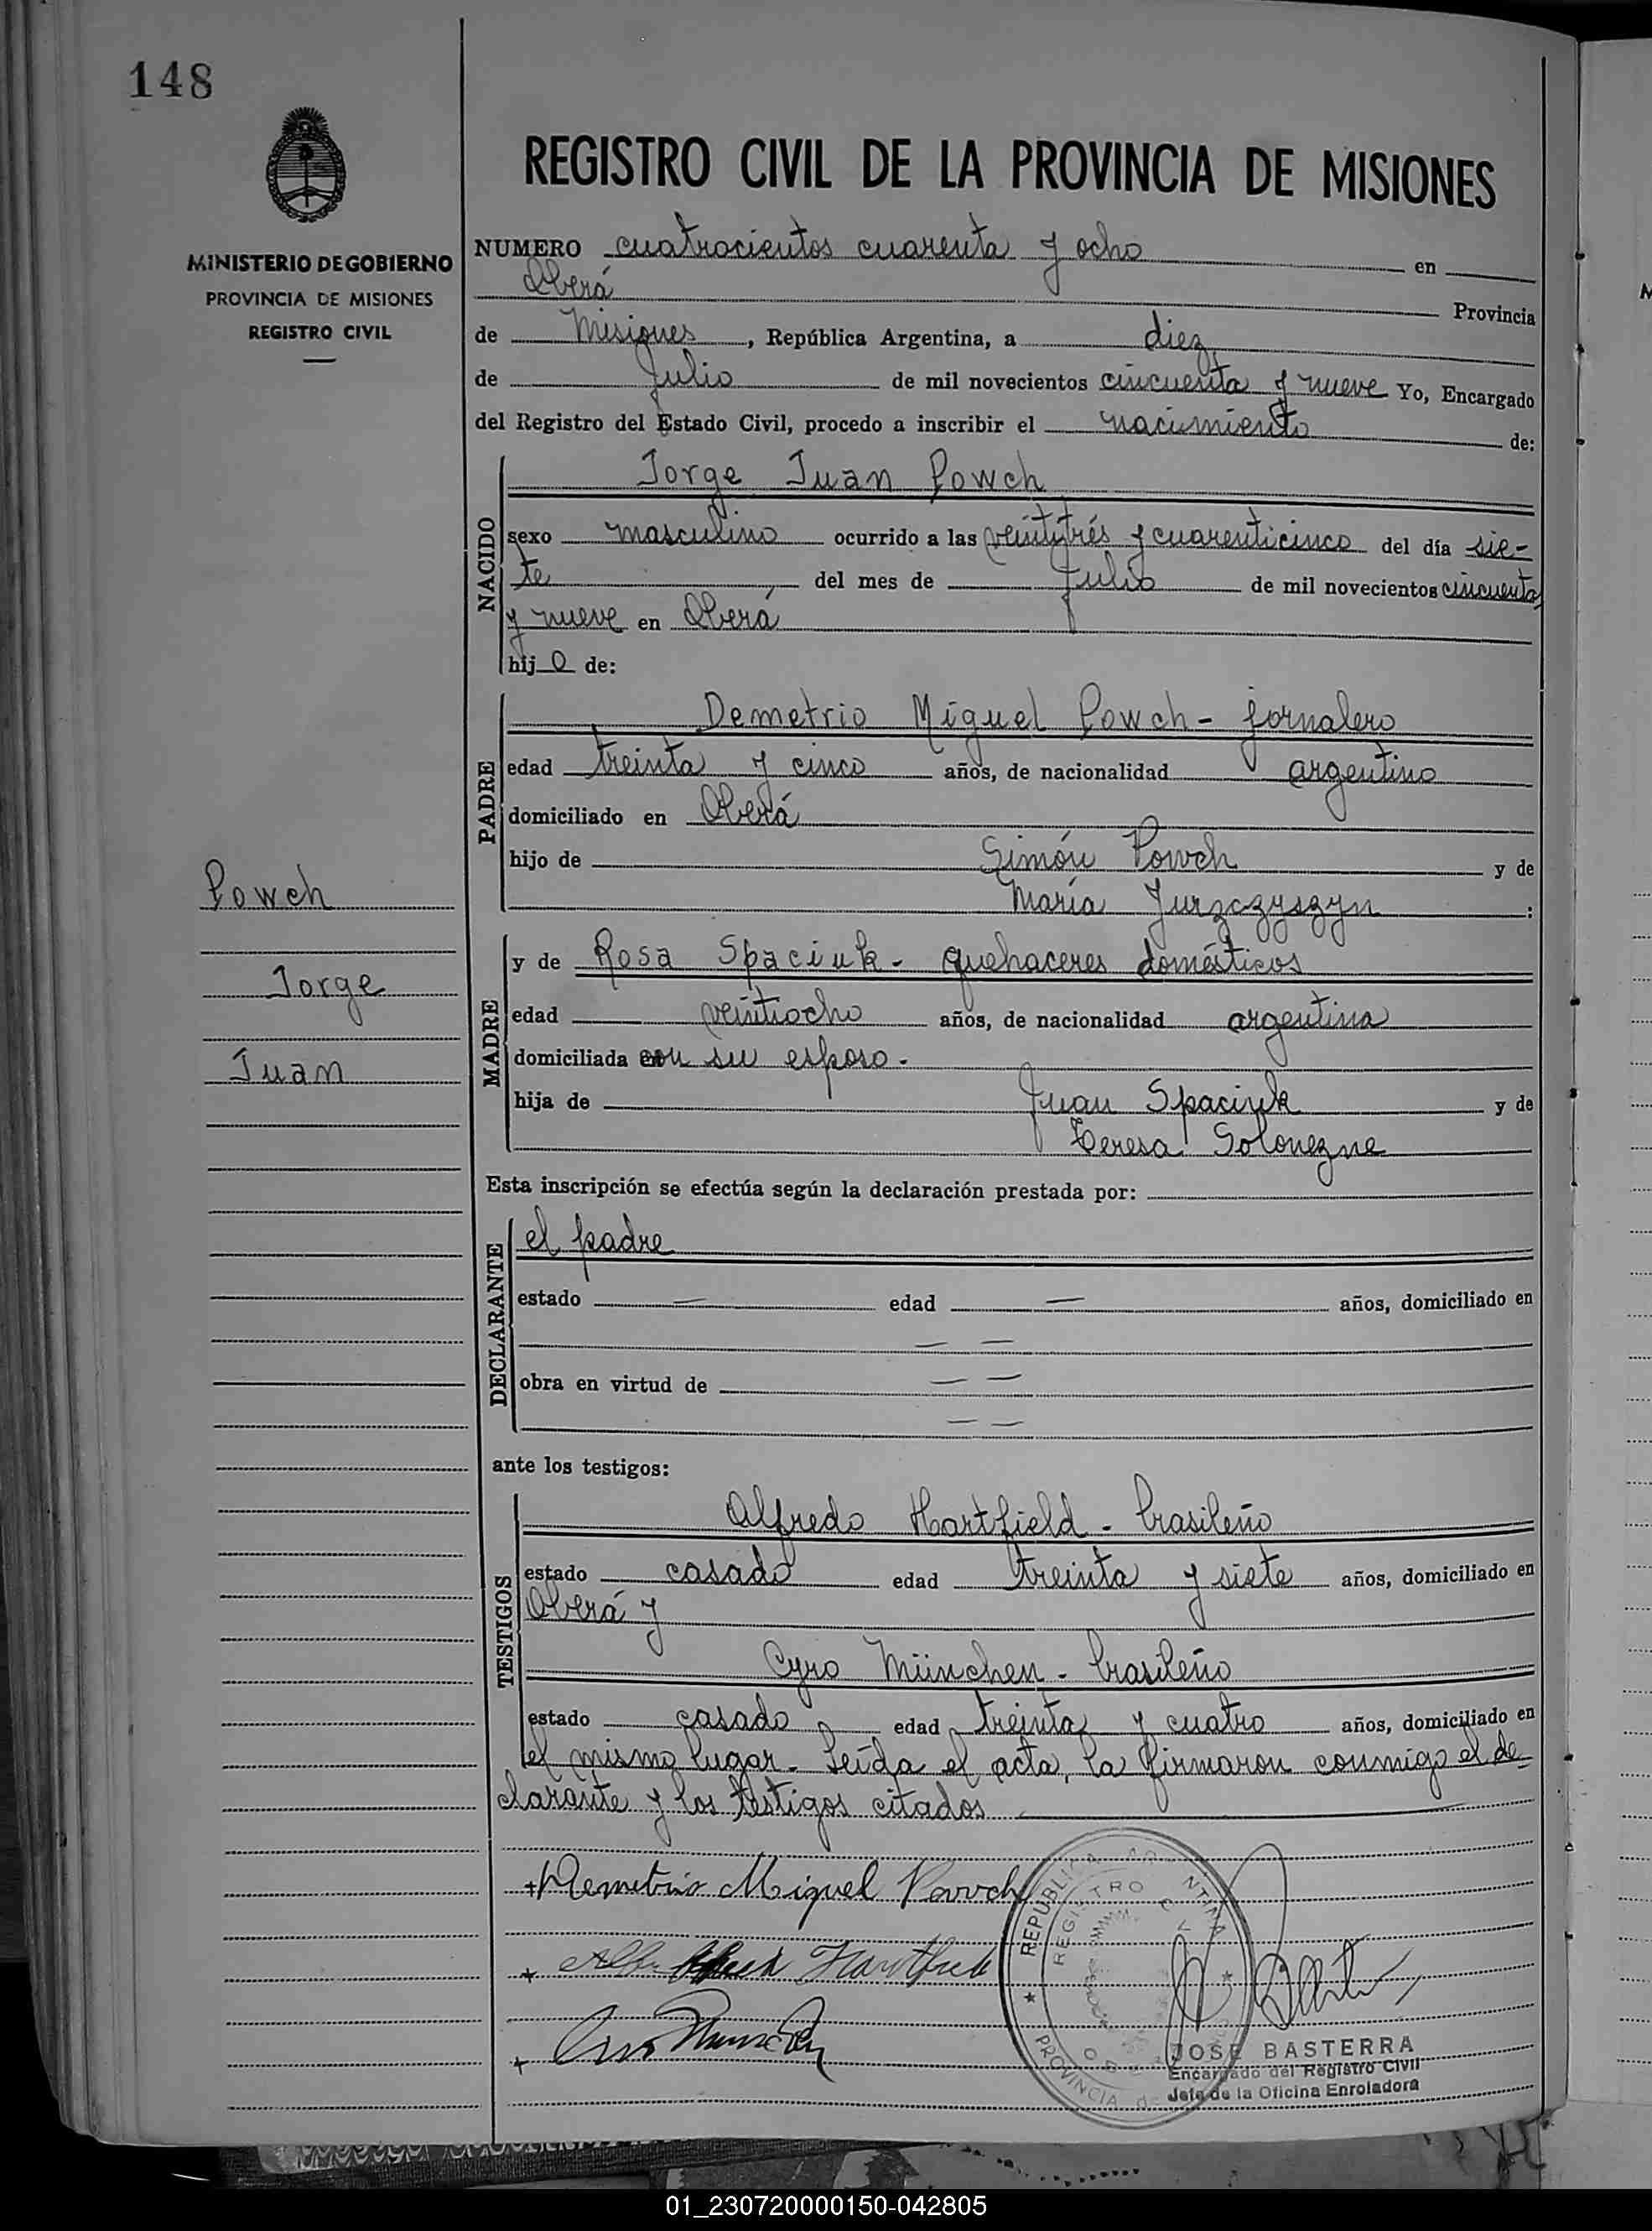 148
REGISTRO CIVIL DE LA PROVINCIA DE MISIONES
MINISTERIO DE GOBIERNO
PROVINCIA DE MISIONES
REGISTRO CIVIL
NUMERO cuatrocientos cuarenta y ocho en
Oberá Provincia
de Misiones, República Argentina, a diez
de Julio de mil novecientos cincuenta y nueve Yo, Encargado
del Registro del Estado Civil, procedo a inscribir el nacimiento de:
NACIDO
Jorge Juan Powch
sexo masculino ocurrido a las veintitrés y cuarenticinco del día sie-
te del mes de Julio de mil novecientos cincuenta
y nueve en Oberá
hijo de:
PADRE
Demetrio Miguel Powch - jornalero
edad treinta y cinco años, de nacionalidad argentino
domiciliado en Oberá
hijo de Simón Powch y de
María Jurzczyszyn :
Powch
Jorge
Juan
MADRE
y de Rosa Spaciuk - quehaceres domésticos
edad veintiocho años, de nacionalidad argentina
domiciliada con su esposo.-
hija de Juan Spaciuk y de
Teresa Solonezne
Esta inscripción se efectúa según la declaración prestada por:
DECLARANTE
el padre
estado — edad — años, domiciliado en
— —
obra en virtud de — —
— —
ante los testigos:
TESTIGOS
Alfredo Hartfield - brasileño
estado casado edad treinta y siete años, domiciliado en
Oberá y
Cyro München - brasileño
estado casado edad treinta y cuatro años, domiciliado en
el mismo lugar.- Leída el acta, la firmaron conmigo el de-
clarante y los testigos citados
+Demetrio Miguel Powch
REPÚBLICA ARGENTINA
REGISTRO CIVIL
PROVINCIA de
JOSE BASTERRA
Encargado del Registro Civil
Jefe de la Oficina Enroladora
01_230720000150-042805